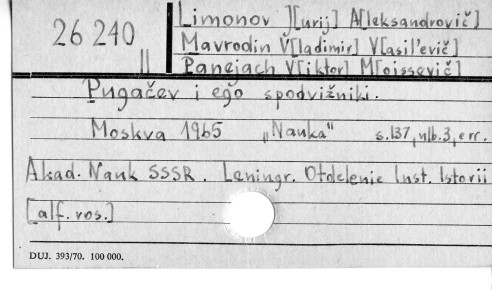 Limonov J[urij] A[leksandrovič]
26 240
Mavrodin V[ladimir] V[asil'evič]
Panejach V[iktor] M[oissevič]
Pugačev i ego spodvižniki.
Moskva 1965 „Nauka" s.137, nlb.3, err.
Akad. Nauk SSSR. Leningr. Otdelenie Inst. Istorii
[alf. vos.]
DUJ. 393/70. 100 000.